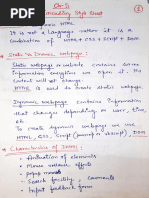 Ch-5
Cascading Style Sheet
①
Dynamic HTML
It is not a language rather it is a
Combination of HTML + CSS + Script + DOM
Static & Dynamic webpage :
Static webpage or website contains some
Information everytime we open it. The
Content will not change.
HTML is used to create static webpage.
Dynamic webpage contains Information
that changes depending on user, time,
etc.
To create dynamic webpage we use
HTML, CSS, Script, DOM
Characteristics of DHTML :
• Animation of elements
• Mouse rollover effects
• Popup menus
• Search facility comments
• Input feedback form